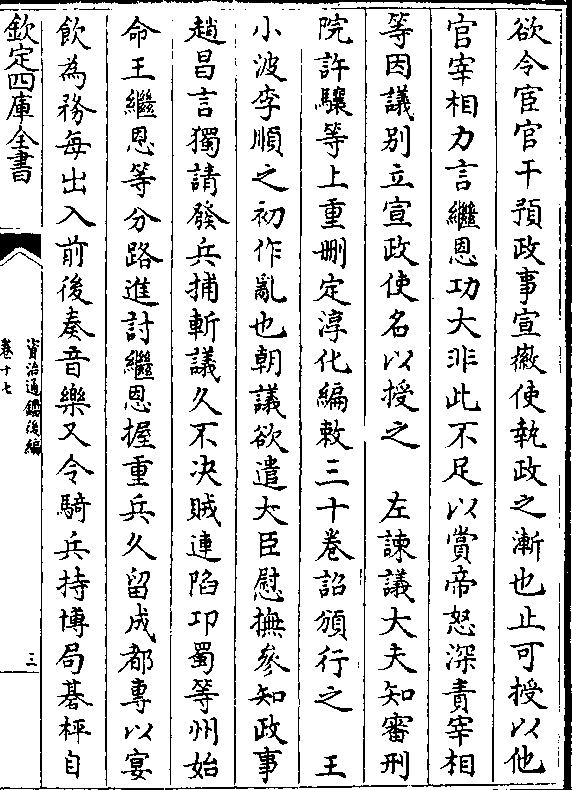 欲令宦官干預政事宣徽使執政之漸也止可授以他
官宰相力言繼恩功大非此不足以賞帝怒深責宰相
等因議别立宣政使名以授之　左諫議大夫知審刑
院許驤等上重删定淳化編敕三十卷詔頒行之　王
小波李順之初作亂也朝議欲遣大臣慰撫參知政事
趙昌言獨請發兵捕斬議久不决賊連陷邛蜀等州始
命王繼恩等分路進討繼恩握重兵久留成都專以宴
飲為務每出入前後奏音樂又令騎兵持博局棊枰自
欽定四庫全書
資治通鑑後編
卷十七
三